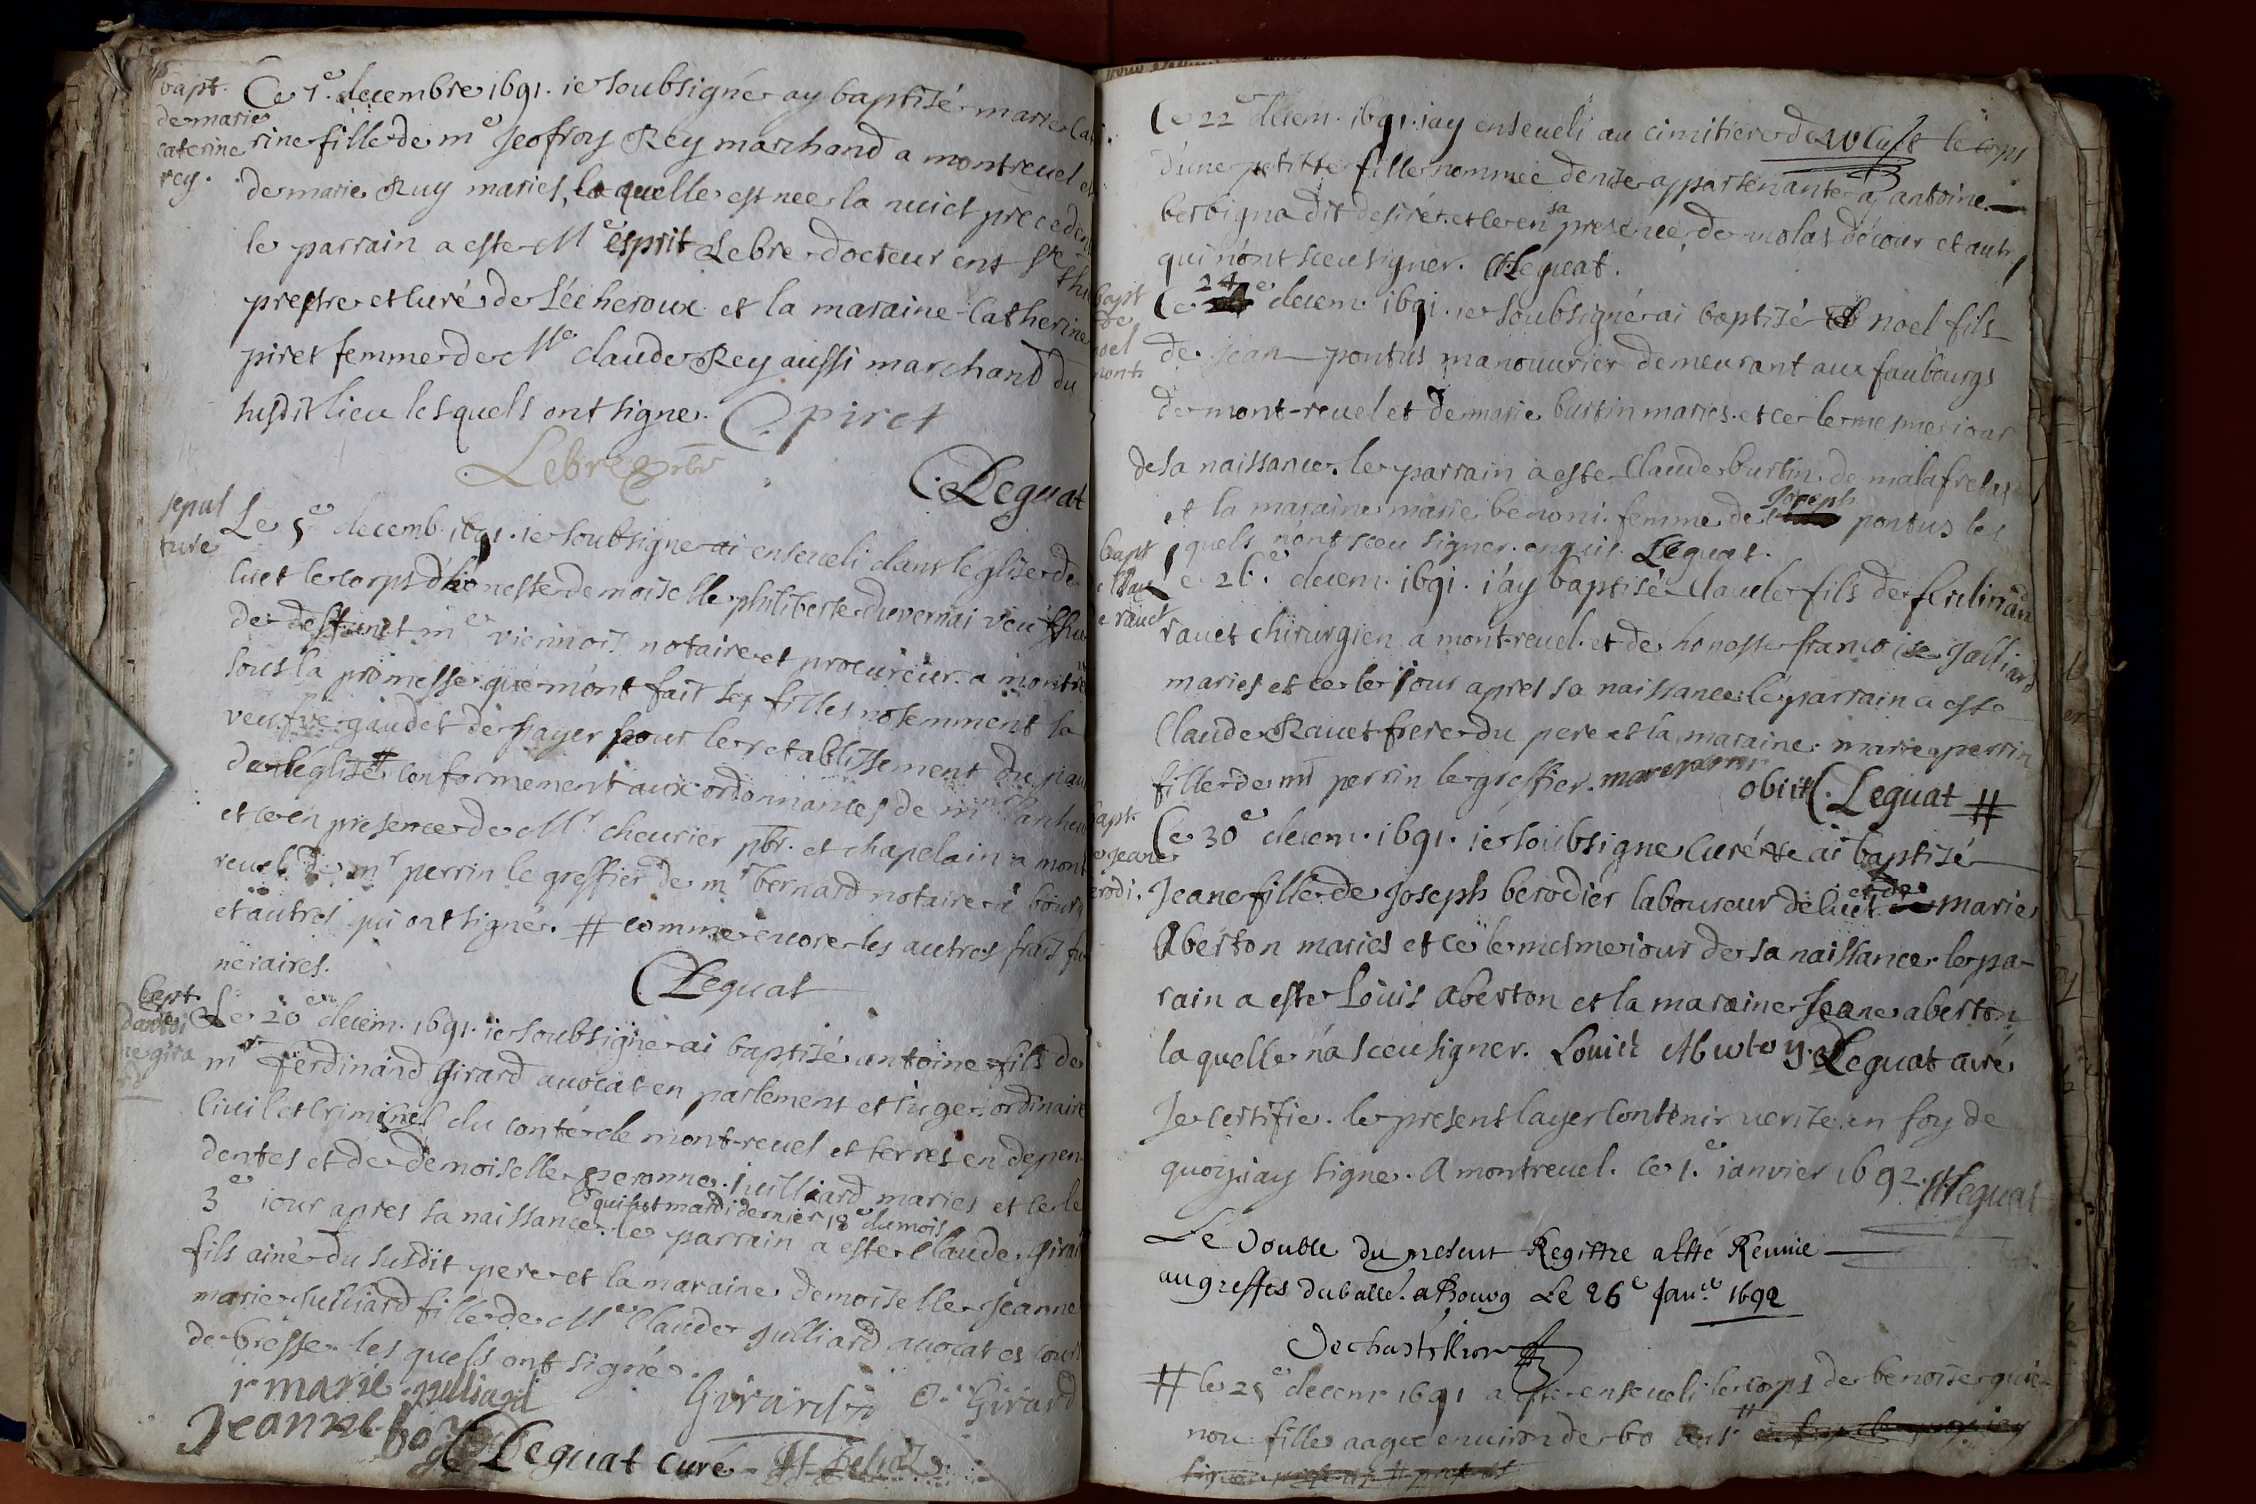 bapt.
de marie
caterine
rey.
Ce 1.e decembre 1691. ie soubsigné ay baptisé marie Cate
rine fille de me Jeofroy Rey marchand a montreuel et
de marie Ruy maries, la quelle est nee la nuict precedente
le parrain a este Me esprit Lebre docteur en ste
prestre et curé de Lécheroux et la maraine Catherine
piret femme de Me claude Rey aussi marchand du
susdit lieu lesquels ont signe. C. piret
Lebre pbr
C. Leguat
sepul
ture
Le 5e decemb. 1691. ie soubsigne ai enseueli dans léglise de
luet le corps d'honneste demoiselle philiberte duvernai
de deffunct me viennois notaire et procureur a montre
sous la promesse que m'ont fait ses filles notemment la
veufve gaudet de payer pour le retablissement du
de léglise # conformement aux ordonnances de
et ce en presence de Mr cheurier pbr. et chapelain a mont
reuel de mr perrin le greffier de mr bernard notaire a bourg
et autres qui ont signé. # comme encore les autres frais fu
neraires.
C Leguat
bapt.
dantoi
ne gira
Le 20e decem. 1691. ie soubsigne ai baptisé antoine fils de
mr Ferdinand Girard auocat en parlement et iuge ordinaire
Ciuil et Criminel du conté de mont-reuel et terres en depen
dentes et de demoiselle peronne Juilliard maries et ce le
3e iour apres sa naissance qui fut mardi dernier 18e du mois le parrain a este Claude girard
fils ainé du susdit pere et la maraine demoiselle Jeanne
marie Julliard fille de Me Claude Julliard auocat es cours
de bresse les quels ont signé.
j. marie julliard Girard C. Girard
Jeanne
Leguat curé
Ce 22e decem. 1691. iay enseueli au cimitiere de Luet le corps
d'une petitte fille nommée denise appartenante a antoine
berbigna dit desiré. et ce en sa presence, de molas décour et autr
qui nont sceu signer. C. Leguat.
bapt
de
noel
pont
Ce 24e decem. 1691. ie soubsigné ai baptisé noel fils
de jean pontus manouurier demeurant aux faubourgs
de mont-reuel et de marie burtin maries. et ce le mesme iour
de sa naissance. le parrain a este Claude burtin de malafretas
et la maraine marie benoni femme de Joseph pontus les
quels n'ont sceu signer. enquis. Leguat.
bapt
Ce 26.e decem. 1691. i'ay baptisé Claude fils de ferdinand
rauet chirurgien a mont-reuel. et de honeste francoise Jalliard
maries et ce le iour apres sa naissance. le parrain a este
Claude Rauet frere du pere et la maraine. marie perrin
fille de mr perrin le greffier. marie perrin
obiit C. Leguat #
bapt.
de jeane
erodi.
Ce 30e decem. 1691. ie soubsigne curé ai baptisé
Jeane fille de Joseph berodier laboureur de luet et de marie
Aberton maries et ce le mesme iour de sa naissance le pa-
rain a este Louis Aberton et la maraine Jeane aberton
laquelle n'a sceu signer. Louis Aberton. Leguat curé
Je certifie le present layer contenir verite. en foy de
quoy iay signe. A montreuel. ce 1.e ianvier 1692. Leguat
Le Double du present Registre a esté Remis
au greffes du balle. a Bourg Le 26e Janer 1692
Dechastillion
# le 25e decem 1691 a este enseueli le corps de benoite gui
non fille aagee enuiron de 60 ans #